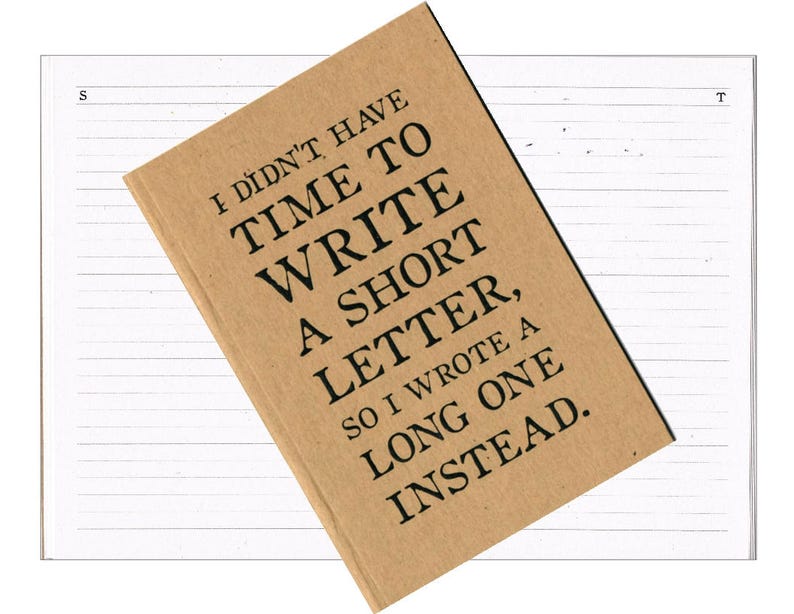 S
T
I DIDN'T HAVE
TIME TO
WRITE
A SHORT
LETTER,
SO I WROTE A
LONG ONE
INSTEAD.